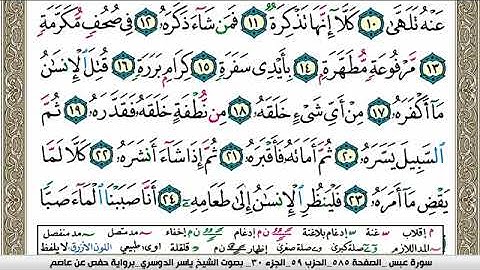 عَنْهُ تَلَهَّىٰ ١٠ كَلَّا إِنَّهَا تَذْكِرَةٌ ١١ فَمَن شَآءَ ذَكَرَهُۥ ١٢ فِى صُحُفٍ مُّكَرَّمَةٍ
١٣ مَّرْفُوعَةٍ مُّطَهَّرَةٍۭ ١٤ بِأَيْدِى سَفَرَةٍ ١٥ كِرَامٍۭ بَرَرَةٍ ١٦ قُتِلَ ٱلْإِنسَٰنُ
مَآ أَكْفَرَهُۥ ١٧ مِنْ أَىِّ شَىْءٍ خَلَقَهُۥ ١٨ مِن نُّطْفَةٍ خَلَقَهُۥ فَقَدَّرَهُۥ ١٩ ثُمَّ
ٱلسَّبِيلَ يَسَّرَهُۥ ٢٠ ثُمَّ أَمَاتَهُۥ فَأَقْبَرَهُۥ ٢١ ثُمَّ إِذَا شَآءَ أَنشَرَهُۥ ٢٢ كَلَّا لَمَّا
يَقْضِ مَآ أَمَرَهُۥ ٢٣ فَلْيَنظُرِ ٱلْإِنسَٰنُ إِلَىٰ طَعَامِهِۦٓ ٢٤ أَنَّا صَبَبْنَا ٱلْمَآءَ صَبًّا
م إقلاب غنة إدغام بلاغنة ن م إدغام إخفاء مد متصل مد منفصل
مد اللازم صلة كبرى صلة صغرى إظهار ن م قلقلة اوى طبيعي اللون الأزرق لا يلفظ
سورة عبس _ الصفحة ٥٨٥_ الحزب ٥٩_ الجزء ٣٠_ بصوت الشيخ ياسر الدوسري_ برواية حفص عن عاصم